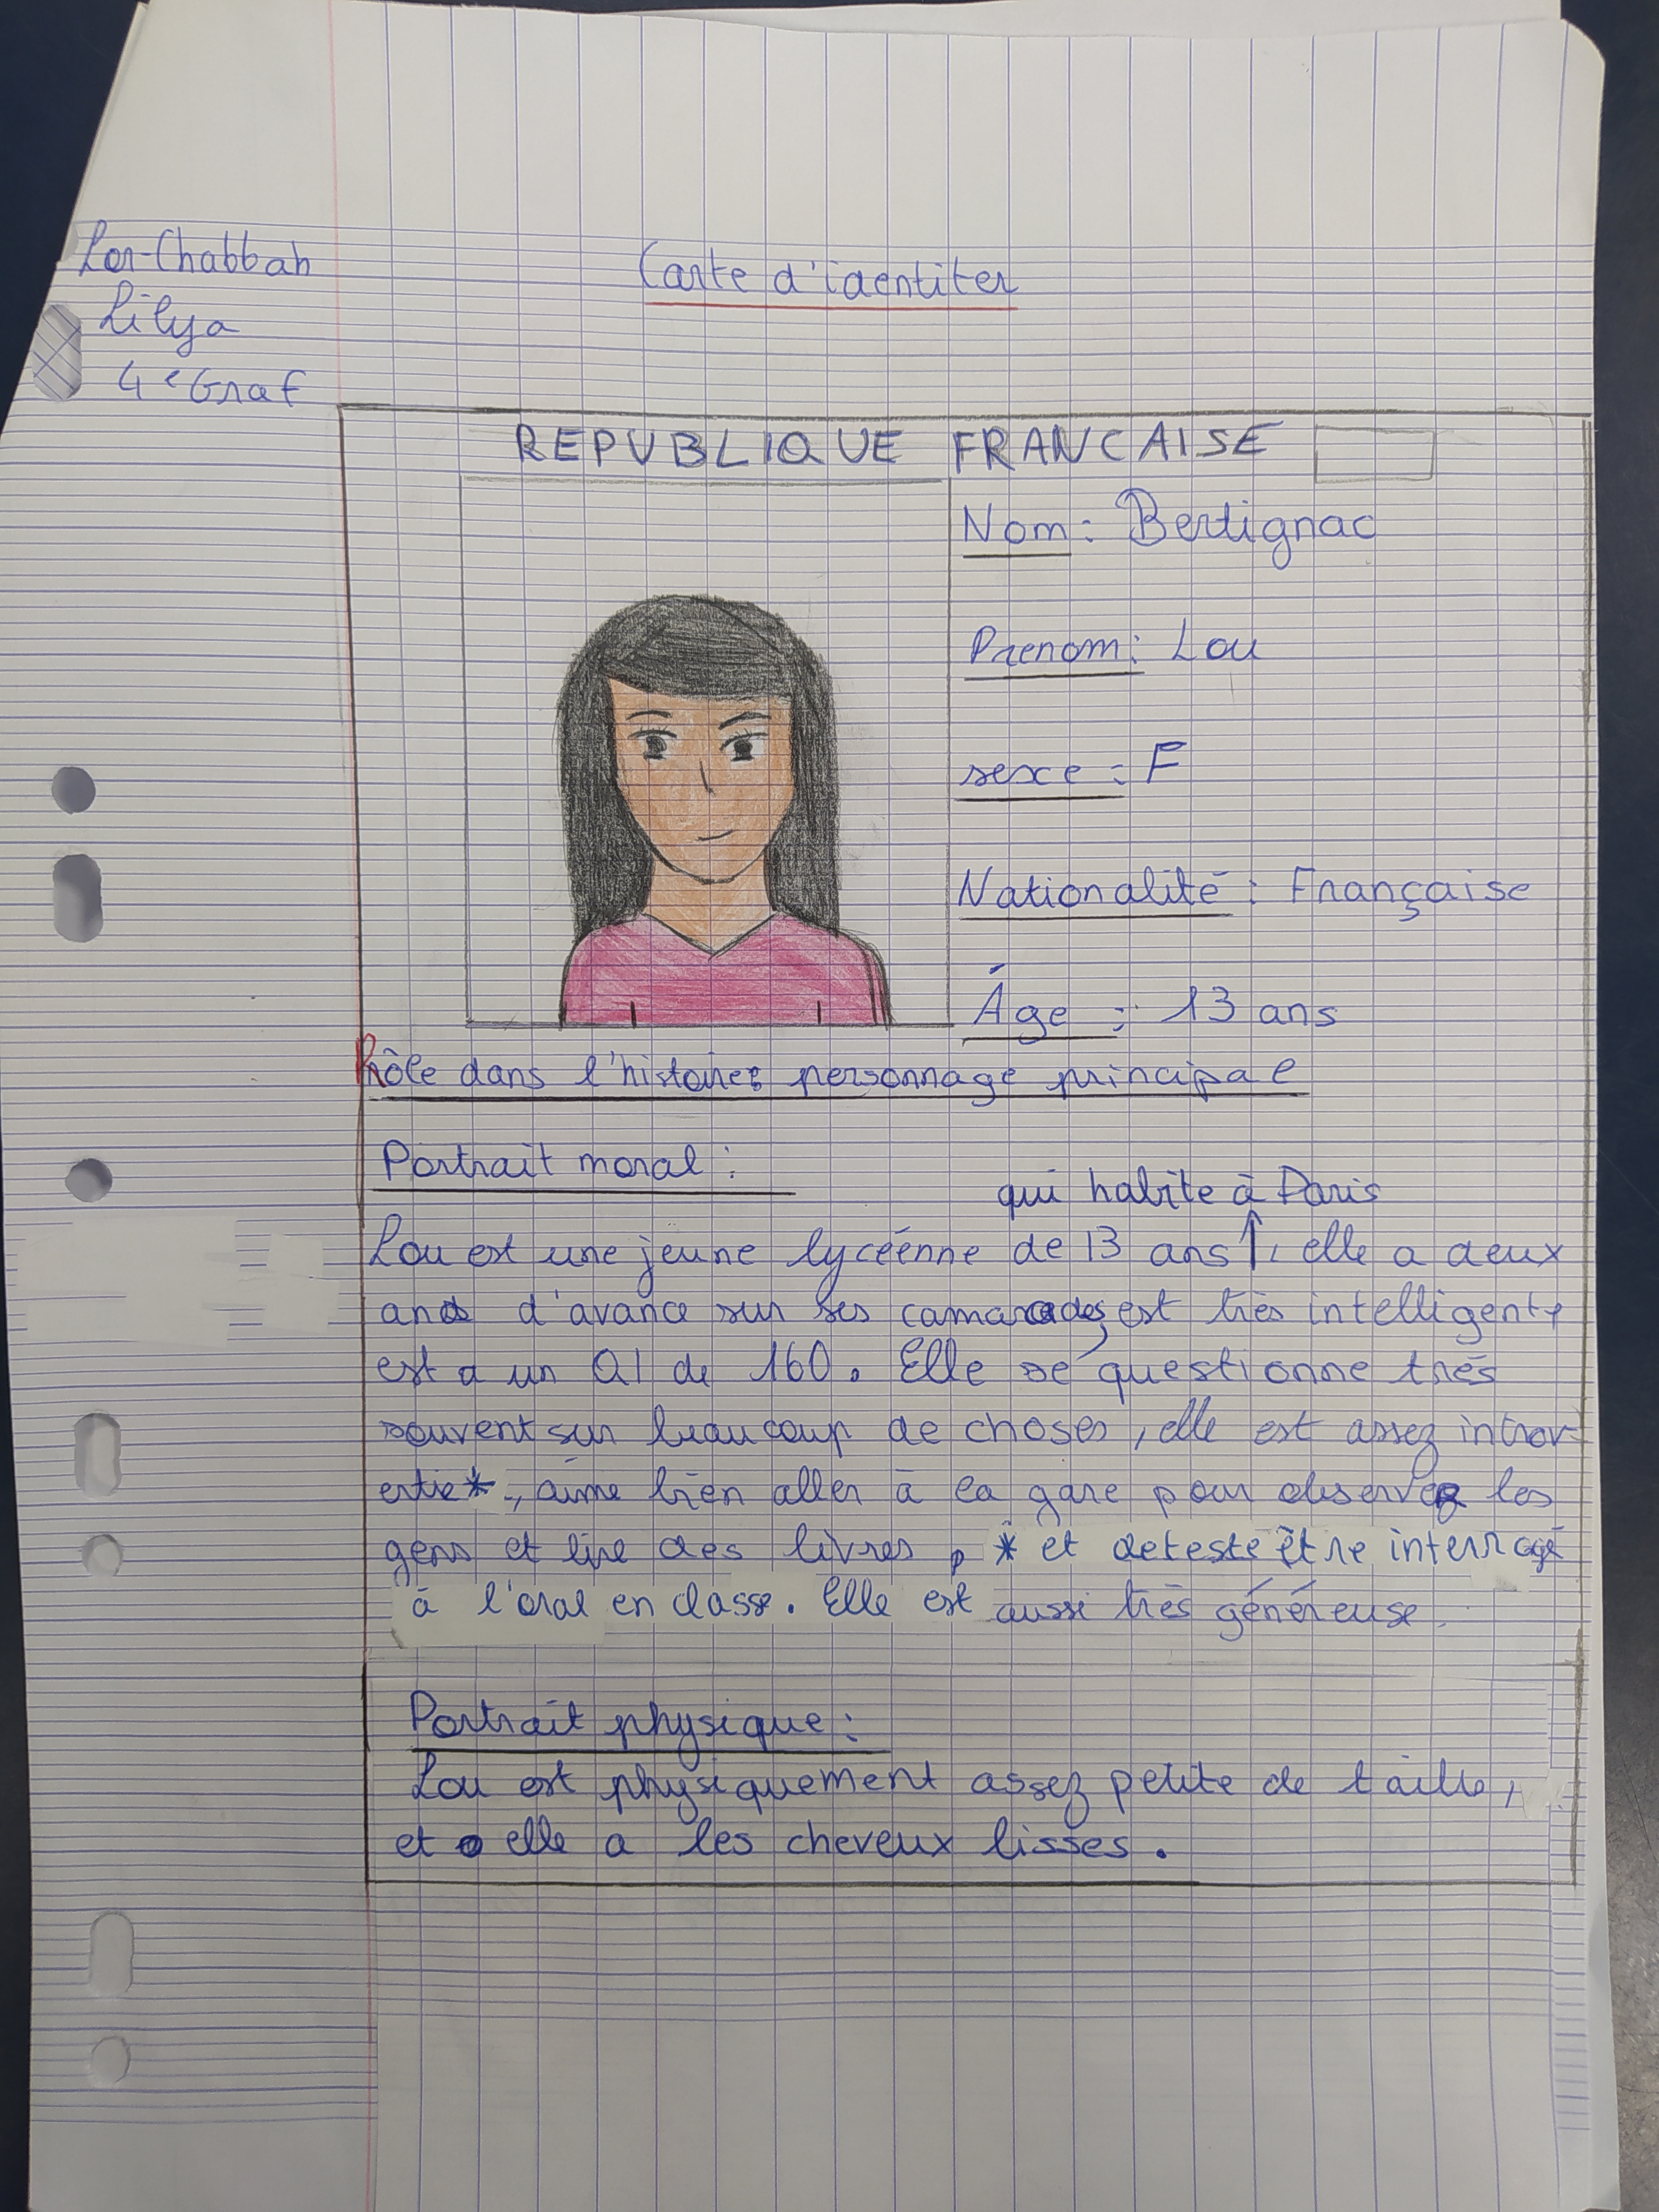 Lor-Chabbah
Lilya
4e Graf
Carte d'identiter
REPUBLIQUE FRANCAISE
Nom : Bertignac
Prenom : Lou
sexe : F
Nationalité : Française
Âge : 13 ans
Rôle dans l'histoire : personnage principal
Portrait moral :
qui habite à Paris
Lou est une jeune lycéenne de 13 ans ↑, elle a deux
ans d'avance sur ses camarades, est très intelligente
est a un QI de 160. Elle se questionne très
souvent sur beaucoup de choses, elle est assez introv
ertie*, aime bien aller à la gare pour observer les
gens et lire des livres, * et deteste être interrogé
à l'oral en classe. Elle est aussi très généreuse.
Portrait physique :
Lou est physiquement assez petite de taille,
et elle a les cheveux lisses.